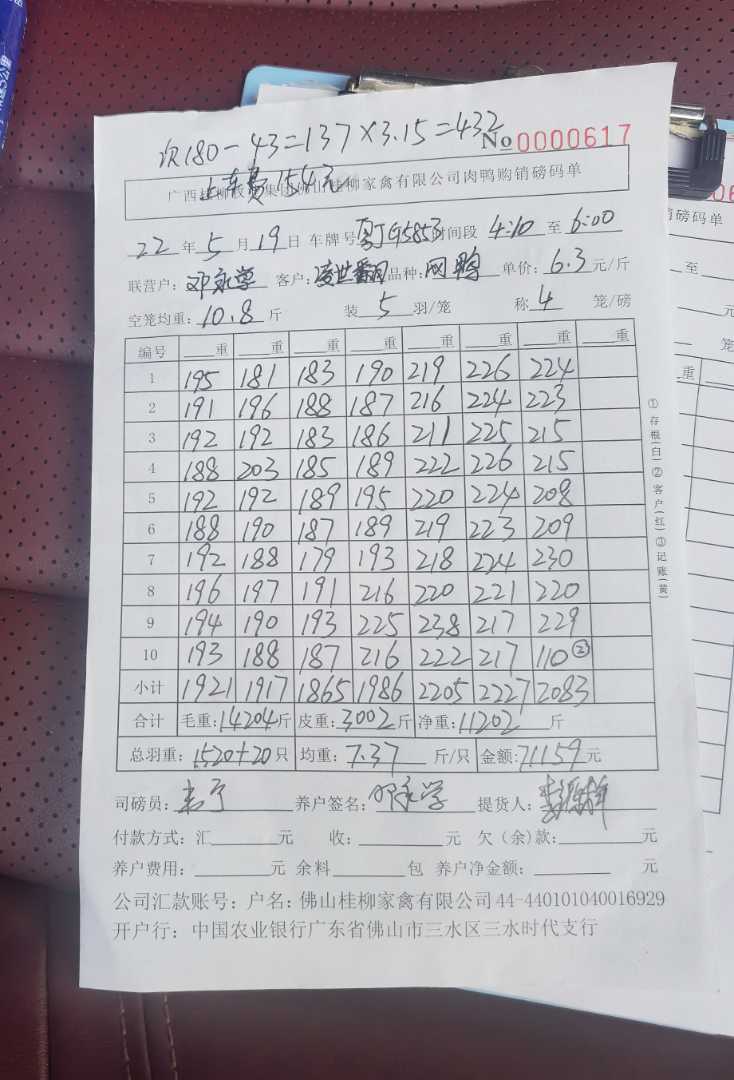 次180-43=137×3.15=432
No 0000617
上车费154元
广西桂柳牧业集团佛山桂柳家禽有限公司肉鸭购销磅码单
22年5月19日 车牌号 粤J G5853 时间段 4:10 至 6:00
联营户: 邓永学 客户: 品种: 网鸭 单价: 6.3元/斤
空笼均重: 10.8斤 装5羽/笼 称4笼/磅
编号 重 重 重 重 重 重 重 重
1 195 181 183 190 219 226 224
2 191 196 188 187 216 224 223
3 192 192 183 186 211 225 215
4 188 203 185 189 222 226 215
5 192 192 189 195 220 224 208
6 188 190 187 189 219 223 209
7 192 188 179 193 218 224 230
8 196 197 191 216 220 221 220
9 194 190 193 225 238 217 229
10 193 188 187 216 222 217 110②
小计 1921 1917 1865 1986 2205 2227 2083
合计 毛重:14204斤 皮重:3002斤 净重:11202斤
总羽重: 1520+20只 均重: 7.37斤/只 金额:71159元
司磅员: 养户签名: 邓永学 提货人:
付款方式: 汇 元 收: 元 欠(余)款: 元
养户费用: 元 余料 包 养户净金额: 元
公司汇款账号: 户名: 佛山桂柳家禽有限公司 44-440101040016929
开户行: 中国农业银行广东省佛山市三水区三水时代支行
①存根(白)②客户(红)③记账(黄)
销磅码单
至
元
笼
重